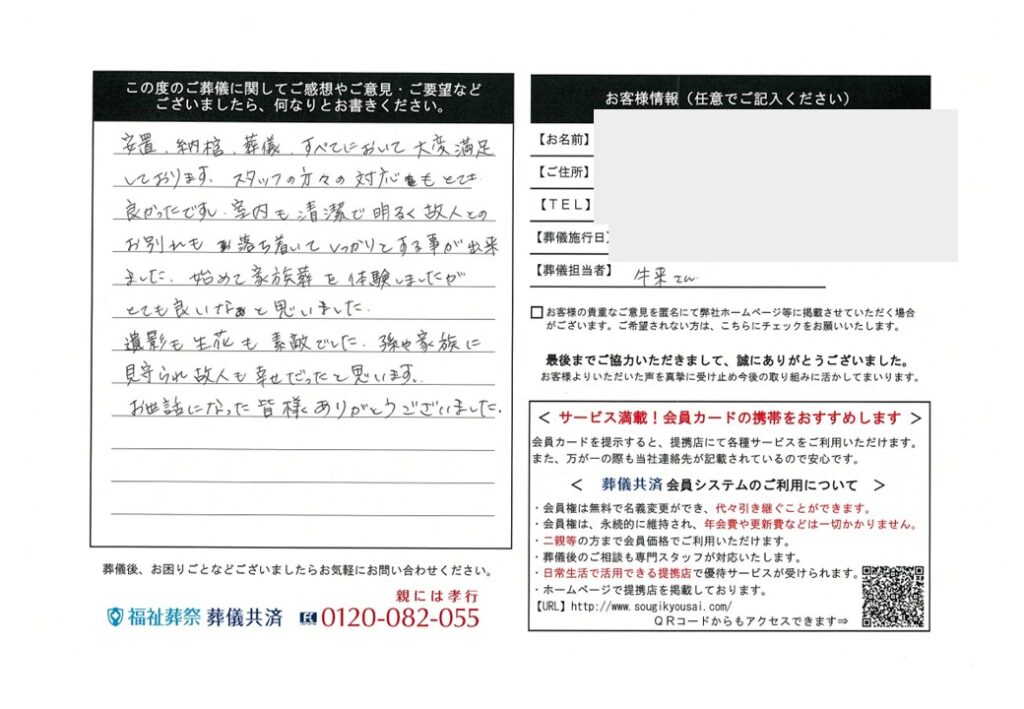 この度のご葬儀に関してご感想やご意見・ご要望など
ございましたら、何なりとお書きください。
安置、納棺、葬儀、すべてにおいて大変満足
しております。スタッフの方々の対応もとても
良かったです。室内も清潔で明るく故人との
お別れも落ち着いてしっかりとする事が出来
ました。始めて家族葬を体験しましたが
とても良いなぁと思いました。
遺影も生花も素敵でした。孫や家族に
見守られ故人も幸せだったと思います。
お世話になった皆様ありがとうございました。
葬儀後、お困りごとなどございましたらお気軽にお問い合わせください。
親には孝行
福祉葬祭 葬儀共済 0120-082-055
お客様情報（任意でご記入ください）
【お名前】
【ご住所】
【ＴＥＬ】
【葬儀施行日】
【葬儀担当者】 牛来さん
お客様の貴重なご意見を匿名にて弊社ホームページ等に掲載させていただく場合
がございます。ご希望されない方は、こちらにチェックをお願いいたします。
最後までご協力いただきまして、誠にありがとうございました。
お客様よりいただいた声を真摯に受け止め今後の取り組みに活かしてまいります。
＜ サービス満載！会員カードの携帯をおすすめします ＞
会員カードを提示すると、提携店にて各種サービスをご利用いただけます。
また、万が一の際も当社連絡先が記載されているので安心です。
＜ 葬儀共済 会員システムのご利用について ＞
・会員権は無料で名義変更ができ、代々引き継ぐことができます。
・会員権は、永続的に維持され、年会費や更新費などは一切かかりません。
・二親等の方まで会員価格でご利用いただけます。
・葬儀後のご相談も専門スタッフが対応いたします。
・日常生活で活用できる提携店で優待サービスが受けられます。
・ホームページで提携店を掲載しております。
【URL】http://www.sougikyousai.com/
ＱＲコードからもアクセスできます⇒